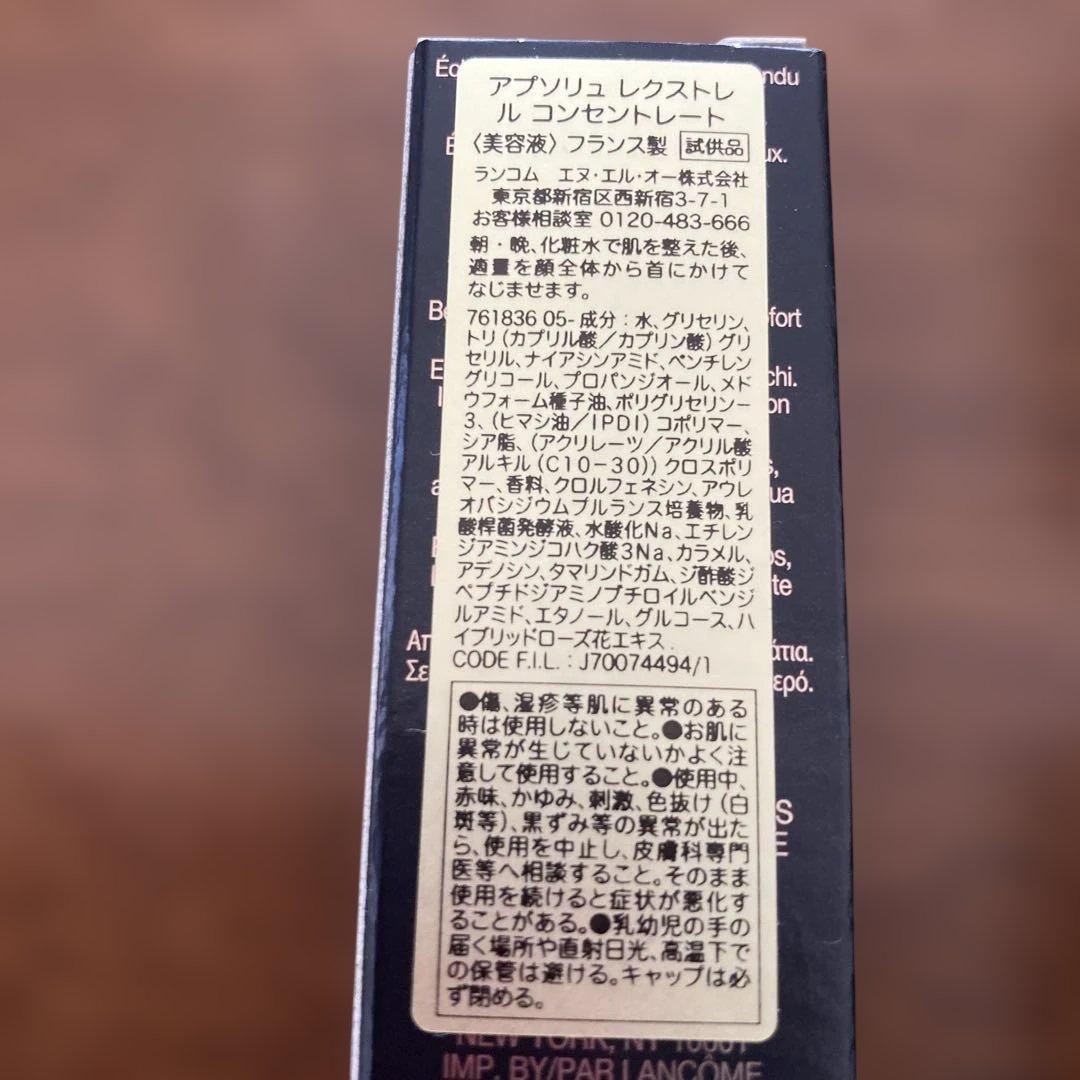 アプソリュ レクストレ
ル コンセントレート
〈美容液〉フランス製 試供品
ランコム エヌ・エル・オー株式会社
東京都新宿区西新宿3-7-1
お客様相談室 0120-483-666
朝・晩、化粧水で肌を整えた後、
適量を顔全体から首にかけて
なじませます。
761836 05- 成分：水、グリセリン、
トリ（カプリル酸／カプリン酸）グリ
セリル、ナイアシンアミド、ペンチレン
グリコール、プロパンジオール、メド
ウフォーム種子油、ポリグリセリン－
3、（ヒマシ油／IPDI）コポリマー、
シア脂、（アクリレーツ／アクリル酸
アルキル（C10－30））クロスポリ
マー、香料、クロルフェネシン、アウレ
オバシジウムプルランス培養物、乳
酸桿菌発酵液、水酸化Na、エチレン
ジアミンジコハク酸3Na、カラメル、
アデノシン、タマリンドガム、ジ酢酸ジ
ペプチドジアミノブチロイルベンジ
ルアミド、エタノール、グルコース、ハ
イブリッドローズ花エキス．
CODE F.I.L.：J70074494/1
●傷、湿疹等肌に異常のある
時は使用しないこと。●お肌に
異常が生じていないかよく注
意して使用すること。●使用中、
赤味、かゆみ、刺激、色抜け（白
斑等）、黒ずみ等の異常が出た
ら、使用を中止し、皮膚科専門
医等へ相談すること。そのまま
使用を続けると症状が悪化す
ることがある。●乳幼児の手の
届く場所や直射日光、高温下で
の保管は避ける。キャップは必
ず閉める。
NEW YORK, NY 10001
IMP. BY/PAR LANCÔME